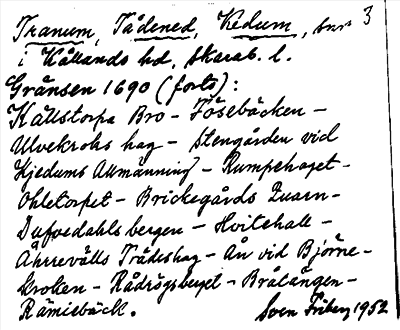 Tranum, Tådened, Kedum, snr 3
i Kållands hd, Skarab. l.
Gränsen 1690 (forts):
Källstorpa Bro - Fösebäcken -
Ulvekroks hag - Stengården vid
Kjedums Allmänning - Rumpehaget -
Ohletorpet - Brickegårds Quarn -
Dufvedahls bergen - Hvitehall -
Åhrrevälls Trädeshag - Ån vid Björne-
kroken - Rådrögsberget - Bråtången -
Rämiebäck. Sven Friberg 1952